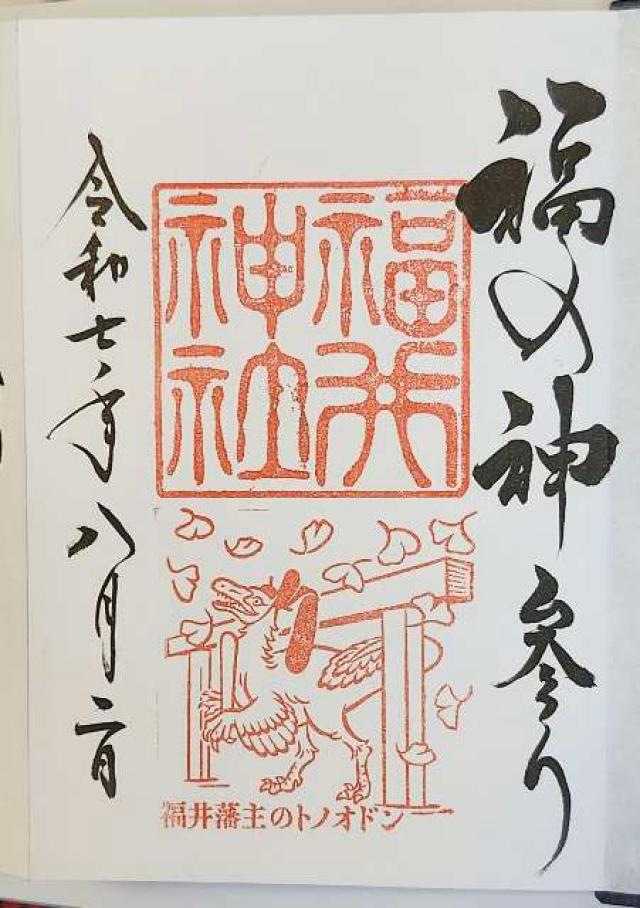 福の神参り
福井
神社
令和七年八月二日
福井藩主のトノオドン